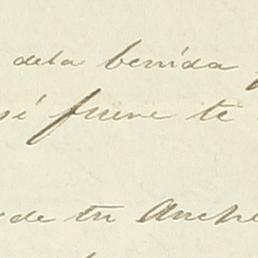 dela benida
sé fuese te
de tu Anche